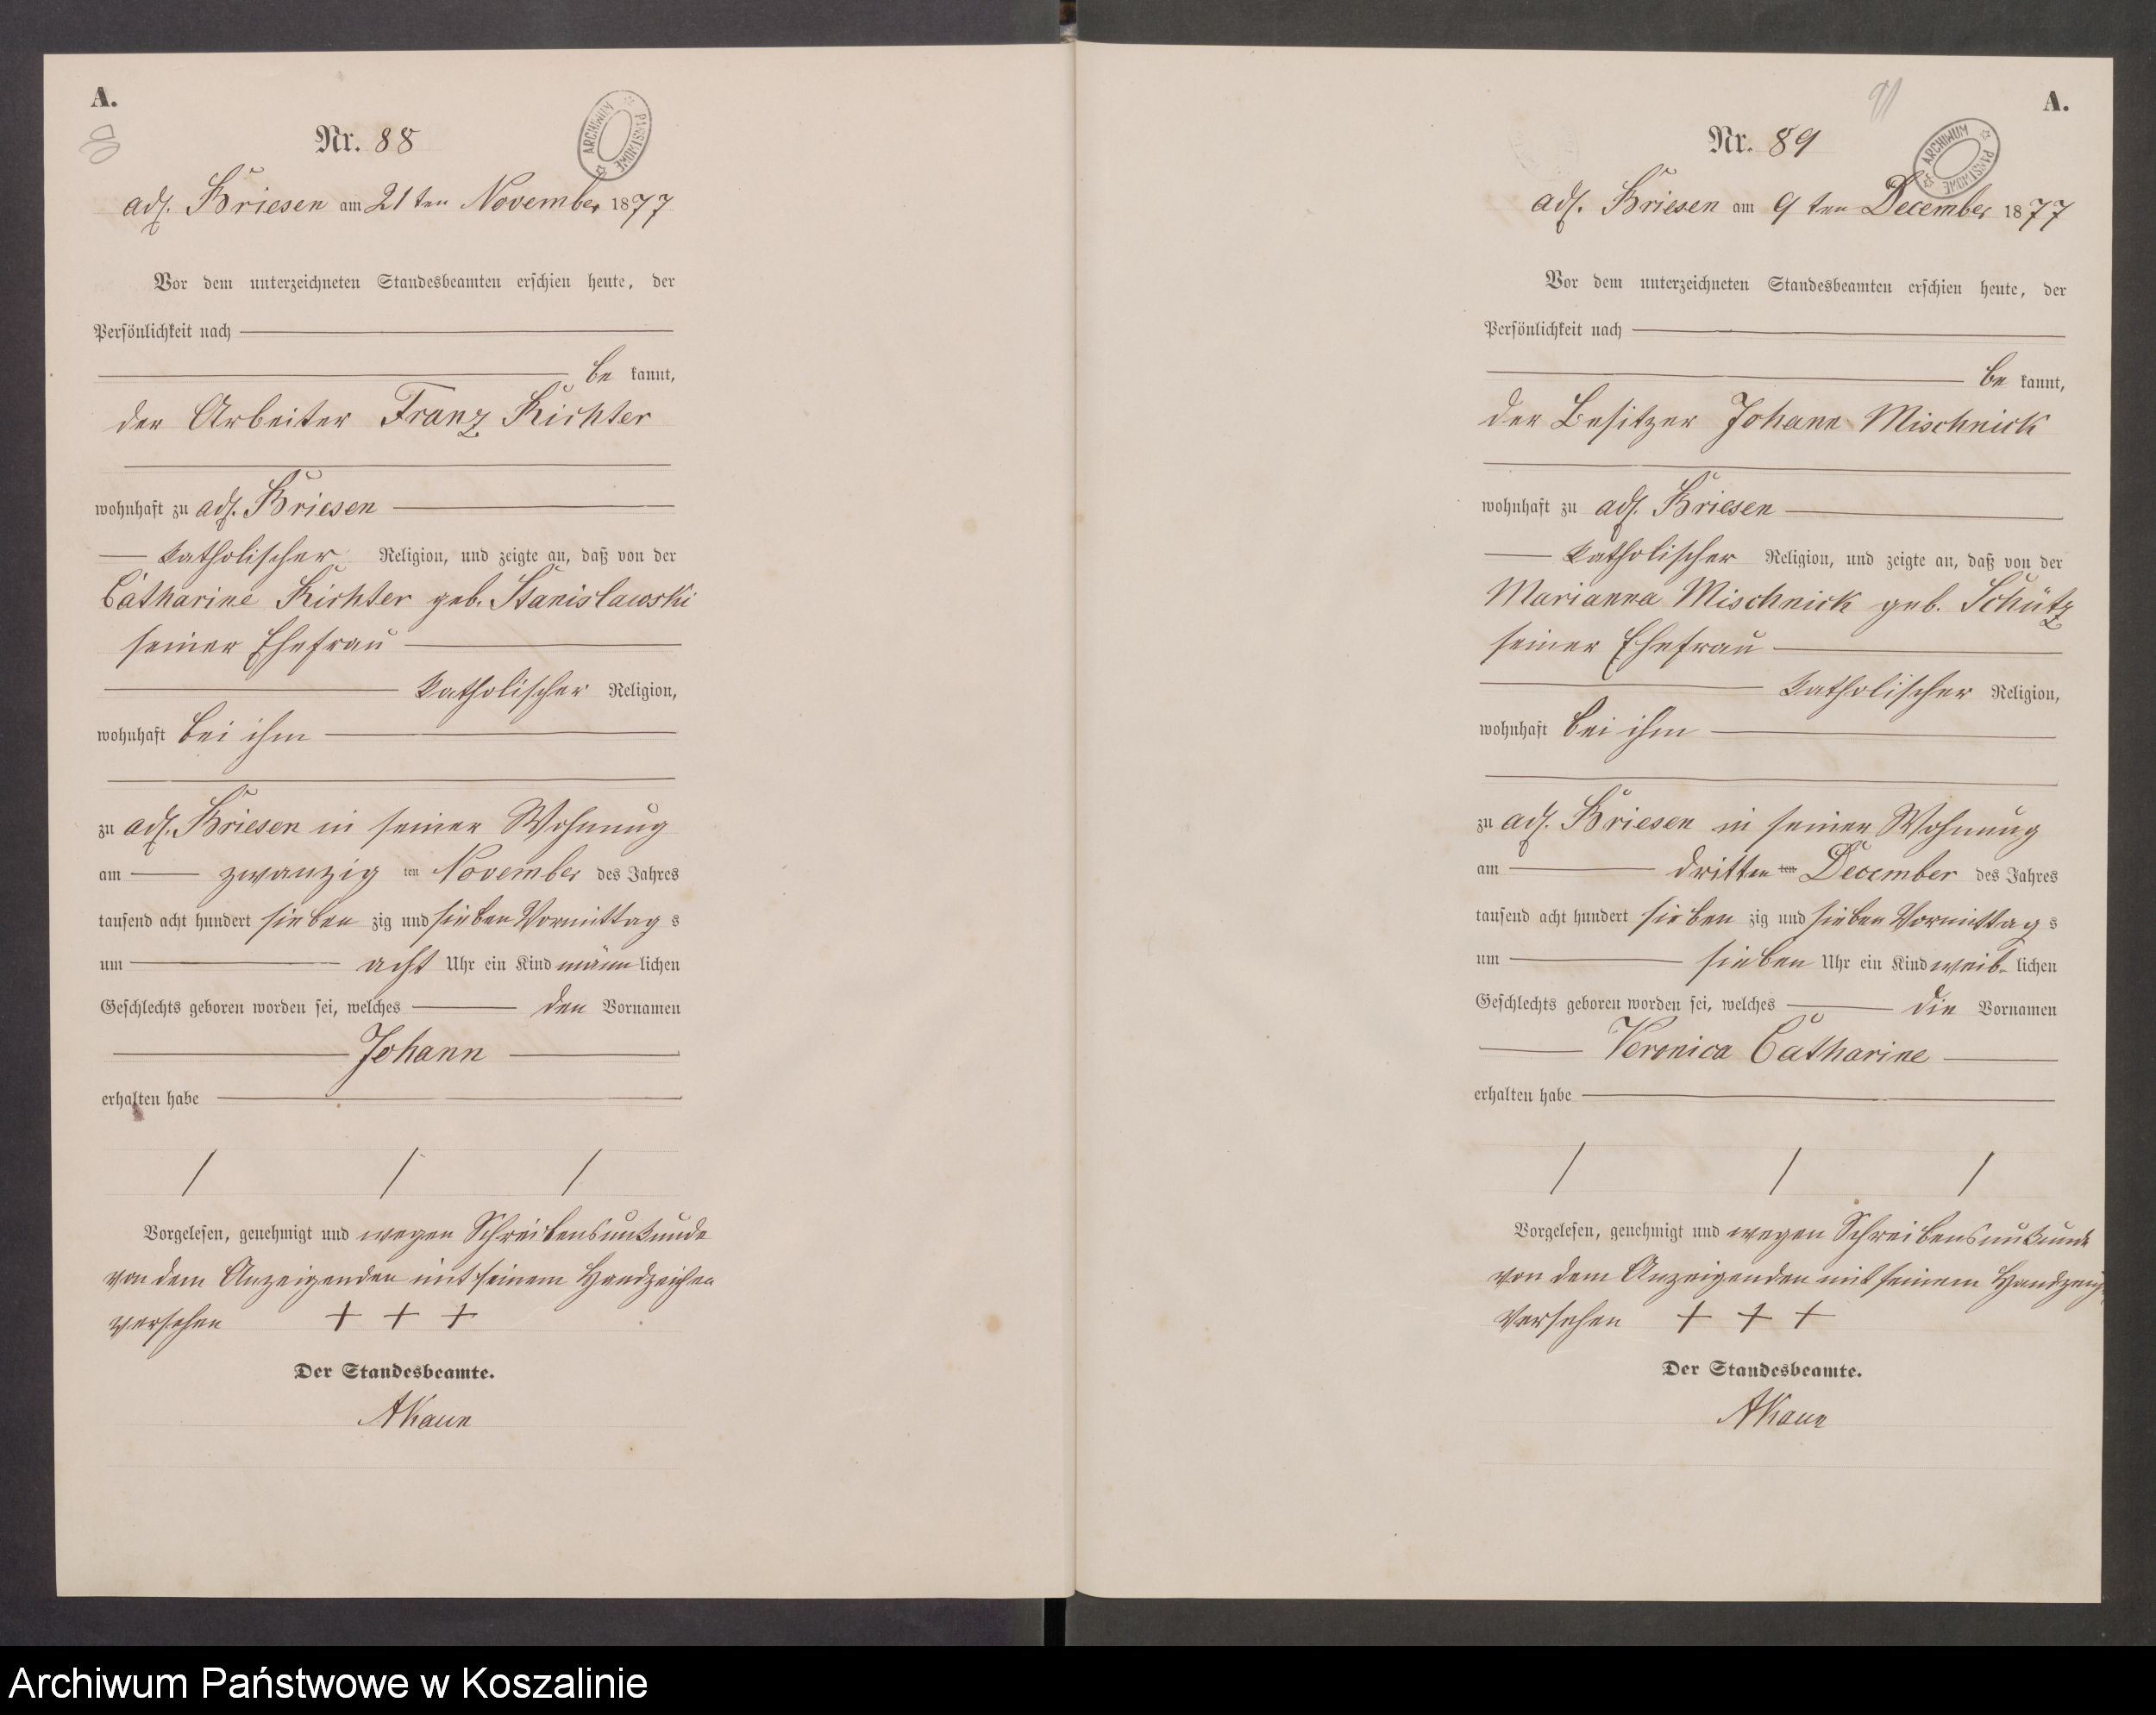 A.
Nr. 88
ARCHIWUM PAŃSTWOWE
adl. Briesen am 21ten November 1877
Vor dem unterzeichneten Standesbeamten erschien heute, der
Persönlichkeit nach
be kannt,
der Arbeiter Franz Richter
wohnhaft zu adl. Briesen
katholischer Religion, und zeigte an, daß von der
Catharine Richter geb. Stanislawski
seiner Ehefrau
katholischer Religion,
wohnhaft bei ihm
zu adl. Briesen in seiner Wohnung
am zwanzig ten November des Jahres
tausend acht hundert sieben zig und sieben Vormittag s
um acht Uhr ein Kind männ lichen
Geschlechts geboren worden sei, welches den Vornamen
Johann
erhalten habe
Vorgelesen, genehmigt und wegen Schreibensunkunde
von dem Anzeigenden mit seinem Handzeichen
versehen + + +
Der Standesbeamte.
AKaun
91
A.
Nr. 89
ARCHIWUM PAŃSTWOWE
adl. Briesen am 9 ten December 1877
Vor dem unterzeichneten Standesbeamten erschien heute, der
Persönlichkeit nach
be kannt,
der Besitzer Johann Mischnick
wohnhaft zu adl. Briesen
katholischer Religion, und zeigte an, daß von der
Marianna Mischnick geb. Schütz
seiner Ehefrau
katholischer Religion,
wohnhaft bei ihm
zu adl. Briesen in seiner Wohnung
am dritten ten December des Jahres
tausend acht hundert sieben zig und sieben Vormittag s
um sieben Uhr ein Kind weib- lichen
Geschlechts geboren worden sei, welches die Vornamen
Veronica Catharine
erhalten habe
Vorgelesen, genehmigt und wegen Schreibensunkunde
von dem Anzeigenden mit seinem Handzeich
versehen + + +
Der Standesbeamte.
AKaun
Archiwum Państwowe w Koszalinie